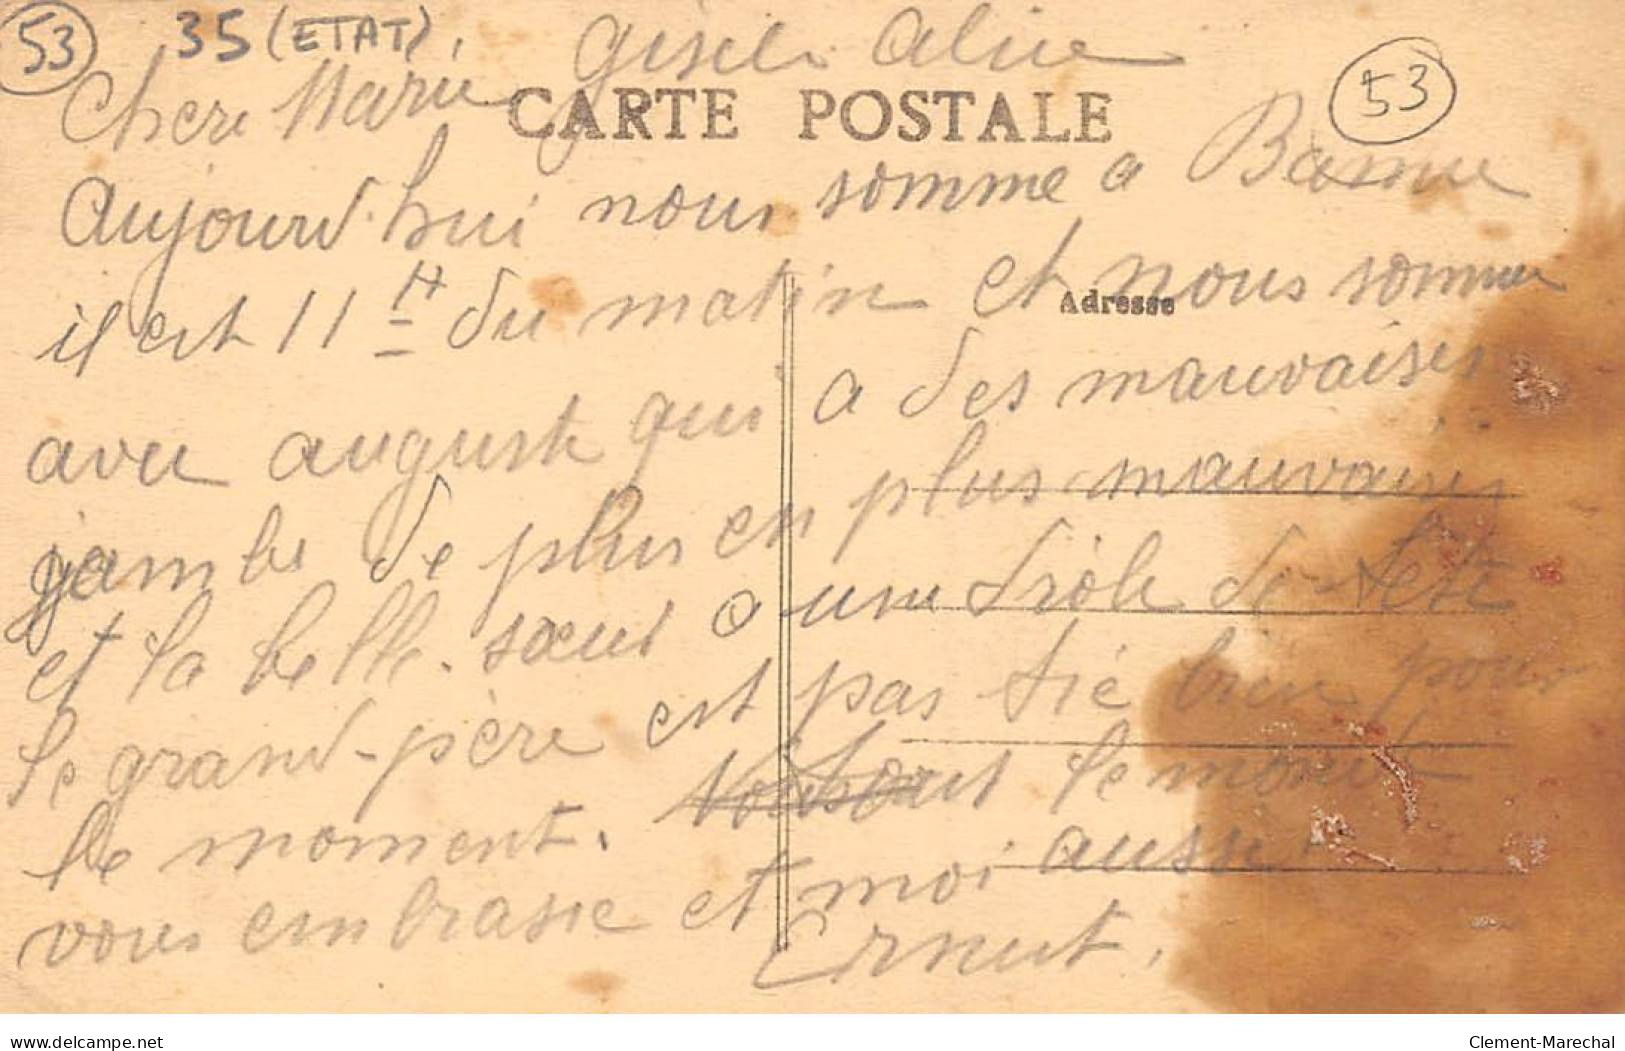 53 35 (ETAT). 53
Chere Marie Gisele Alice
CARTE POSTALE
Aujourd'hui nous somme a
il est 11 H du matin et nous somme
Adresse
avec auguste qui a des mauvaises
jambe de plus en plus mauvaises
et la belle-sœur a une drôle de tete
le grand-père est pas bien pour
le moment. tout le monde
vous embrasse et moi aussi
Ernest.
www.delcampe.net
Clement-Marechal